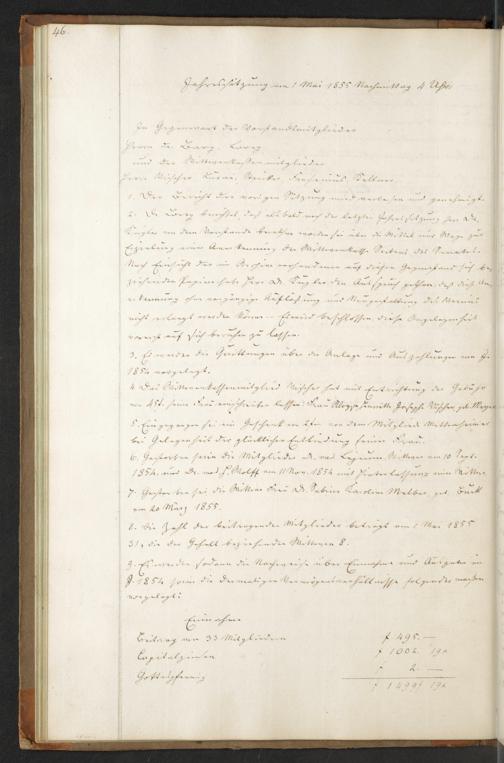 46.
Jahressitzung am 1 Mai 1855 Nachmittag 4 Uhr
In Gegenwart der Vorstandsmitglieder
Herrn Dr
und der Wittwenkassenmitglieder
Herrn
1. Der Bericht der vorigen Sitzung wird verlesen und genehmigt.
2. Dr berichtet, daß alsbald nach der letzten Jahressitzung
an dem Vorstande berathen worden sei über die Mittel und Wege zur
Erzielung einer Anerkennung der Wittwenkasse Seitens des Senates.
Nach Einsicht der im Archiv vorhandenen auf diesen Gegenstand sich be-
ziehenden Papiere habe Herr Dr den Ausspruch gethan, daß diese An-
erkennung ohne vorgängige Auflösung und Neugestaltung des Vereins
nicht erlangt werden könne. Es wird beschlossen diese Angelegenheit
vorerst auf sich beruhen zu lassen.
3. Es werden die Quittungen über die Anlage und Auszahlungen von J.
1854 vorgelegt.
4. Das Wittwenkassenmitglied hat mit Entrichtung der Gebühr
von 45 seine Frau einschreiben lassen: Frau
5. Eingegangen sei ein Geschenk von dem Mitglied
bei Gelegenheit der glücklichen Entbindung seiner Frau.
6. Gestorben seien die Mitglieder Dr. med. am 10 Sept.
1854. und Dr. med. am 11 Nov. 1854 mit Hinterlassung einer Wittwe.
7. Gestorben sei die Wittwe Frau Dr. Sabine Karoline Melber, geb.
am 20 März 1855.
8. Die Zahl der beitragenden Mitglieder beträgt am 1 Mai 1855
31, die der Gehalt beziehenden Wittwen 8.
9. Es werden sodann die Nachweise über Einnahme und Ausgabe im
J. 1854 sowie die dermaligen Vermögensverhältnisse folgendermaßen
vorgelegt:
Einnahme
Beitrag von 33 Mitgliedern f 495. —
Capitalzinsen f 1002. 19x
Gottespfennig f 2. —
f 1499. 19x